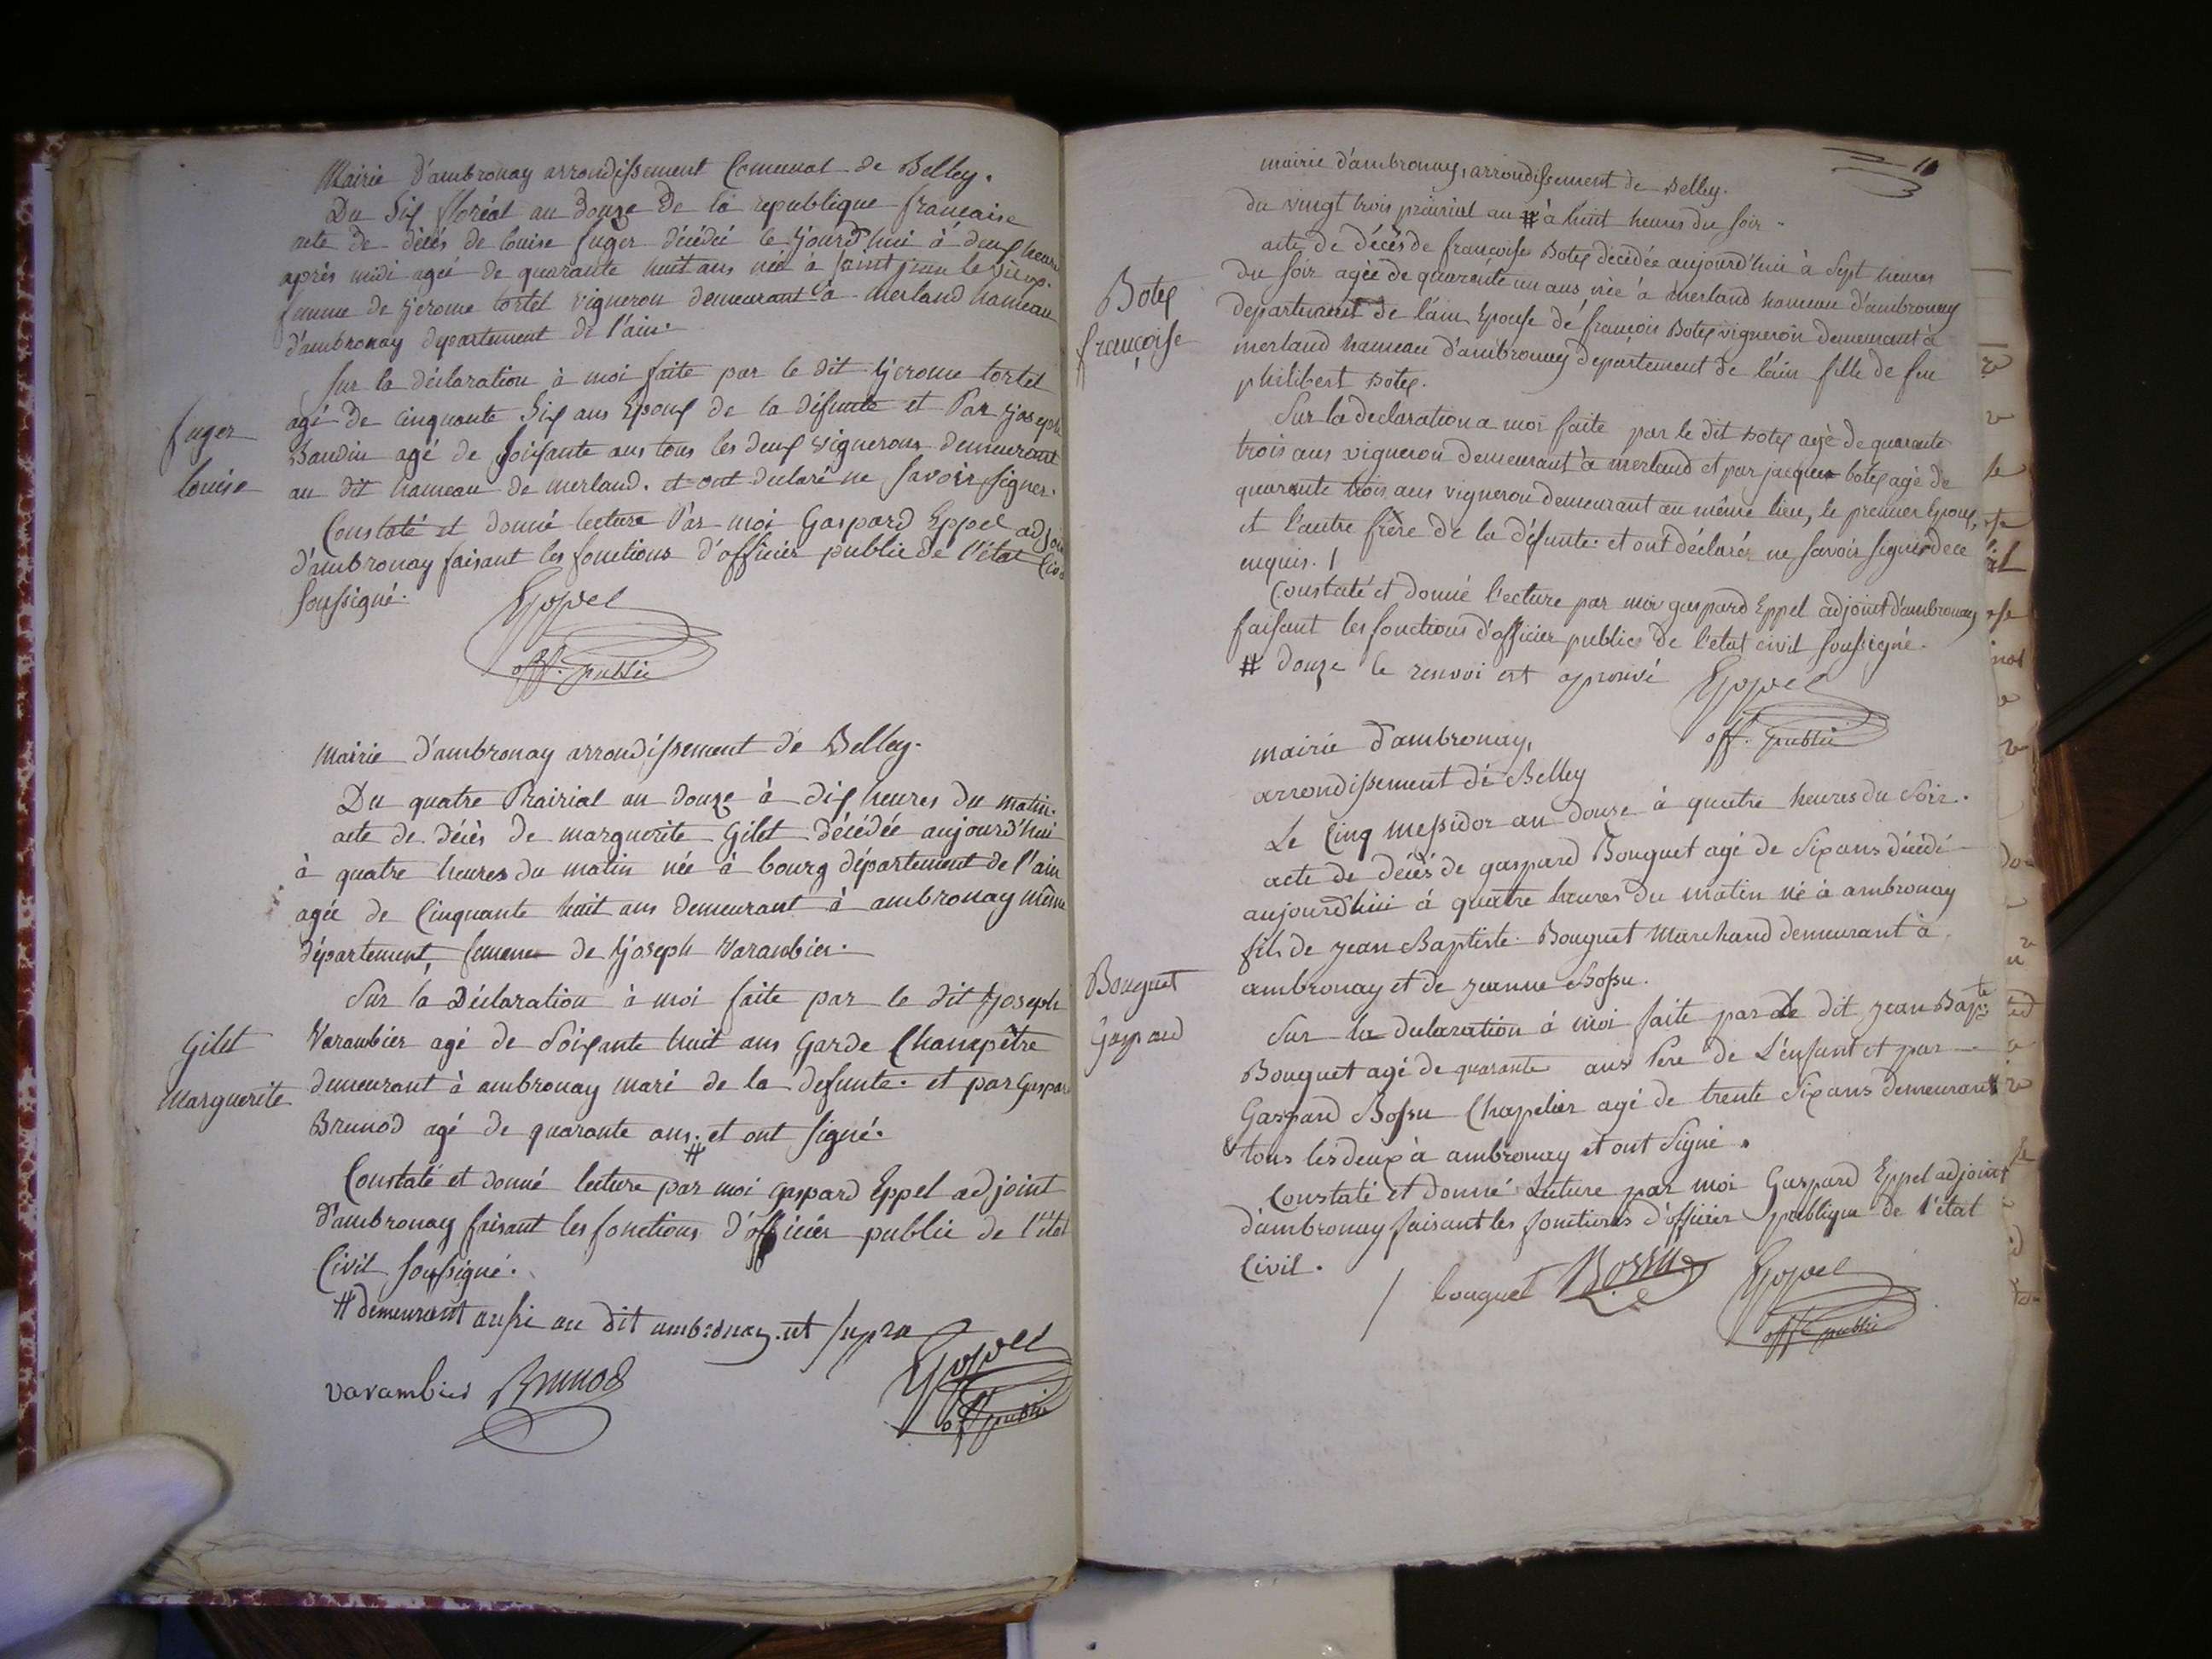 Mairie D'ambronay arrondissement Comunal de Belley.
Du Six floréal an douze De la republique francaise
acte de décés de louise fuger décédée le jourd'hui à deux heures
après midi agée de quarante huit ans née à saint jean le vieux.
femme de jerome tortel vigneron demeurant à merland hameau
d'ambronay departement de l'ain.
fuger
louise
Sur la déclaration à moi faite par le dit jerome tortel
agé de cinquante Six ans Epoux de la défunte et Par joseph
Baudin agé de soixante ans tous les deux vignerons demeurant
au dit hameau de merland. et ont declaré ne savoir signer.
Constaté et donné lecture Par moi Gaspard Eppel adjoint
d'ambronay faisant les fonctions d'officier public de l'état Civil
soussigné.
Eppel
off. public
Mairie d'ambronay arrondissement de Belley.
Du quatre Prairial an douze à dix heures du matin.
acte de décès de marguerite Gilet décédée aujourd'hui
à quatre heures du matin née à bourg département de l'ain
agée de Cinquante huit ans demeurant à ambronay même
département, femme de joseph Varambier.
Gilet
Marguerite
Sur la Déclaration à moi faite par le dit joseph
Varambier agé de Soixante huit ans Garde Champêtre
demeurant à ambronay mari de la defunte. et par Gaspard
Brunod agé de quarante ans. # et ont signé.
Constaté et donné lecture par moi gaspard Eppel adjoint
d'ambronay faisant les fonctions d'officier public de l'état
Civil soussigné.
# demeurant aussi au dit ambronay. ut supra
varambier Brunod Eppel
off public
11
mairie d'ambronay, arrondissement de Belley.
du vingt trois prairial an # à huit heures du soir
acte de décès de françoise Botex décédée aujourd'hui à sept heures
du soir agée de quarante un ans née à merland hameau d'ambronay
departement de l'ain Epouse de françois Botex vigneron demeurant à
merland hameau d'ambronay departement de l'ain fille de feu
philibert Botex.
Botex
françoise
Sur la declaration a moi faite par le dit Botex agé de quarante
trois ans vigneron demeurant à merland et par jacques botex agé de
quarante trois ans vigneron demeurant au même lieu, le premier Epoux,
et l'autre frère de la défunte. et ont déclaré ne savoir signer de ce
enquis.
Constaté et donné lecture par moi gaspard Eppel adjoint d'ambronay
faisant les fonctions d'officier public de l'état civil soussigné.
# douze le renvoi est aprouvé Eppel
off. public
mairie d'ambronay,
arrondissement de Belley
Le Cinq messidor an douze à quatre heures du Soir.
acte de décés de gaspard Bouguet agé de Six ans décédé
aujourd'hui à quatre heures du matin né à ambronay
fils de jean Baptiste Bouguet Marchand demeurant à
ambronay et de jeanne Bossu.
Bouguet
Gaspard
Sur la declaration à moi faite par le dit jean Bapte
Bouguet agé de quarante ans Pere de L'enfant et par
Gaspard Bossu Chapelier agé de trente Six ans demeurant
tous les deux à ambronay et ont Signé.
Constaté et donné Lecture par moi Gaspard Eppel adjoint
d'ambronay faisant les fonctions d'officier publique de l'état
Civil.
bouguet Bossu Eppel
off public